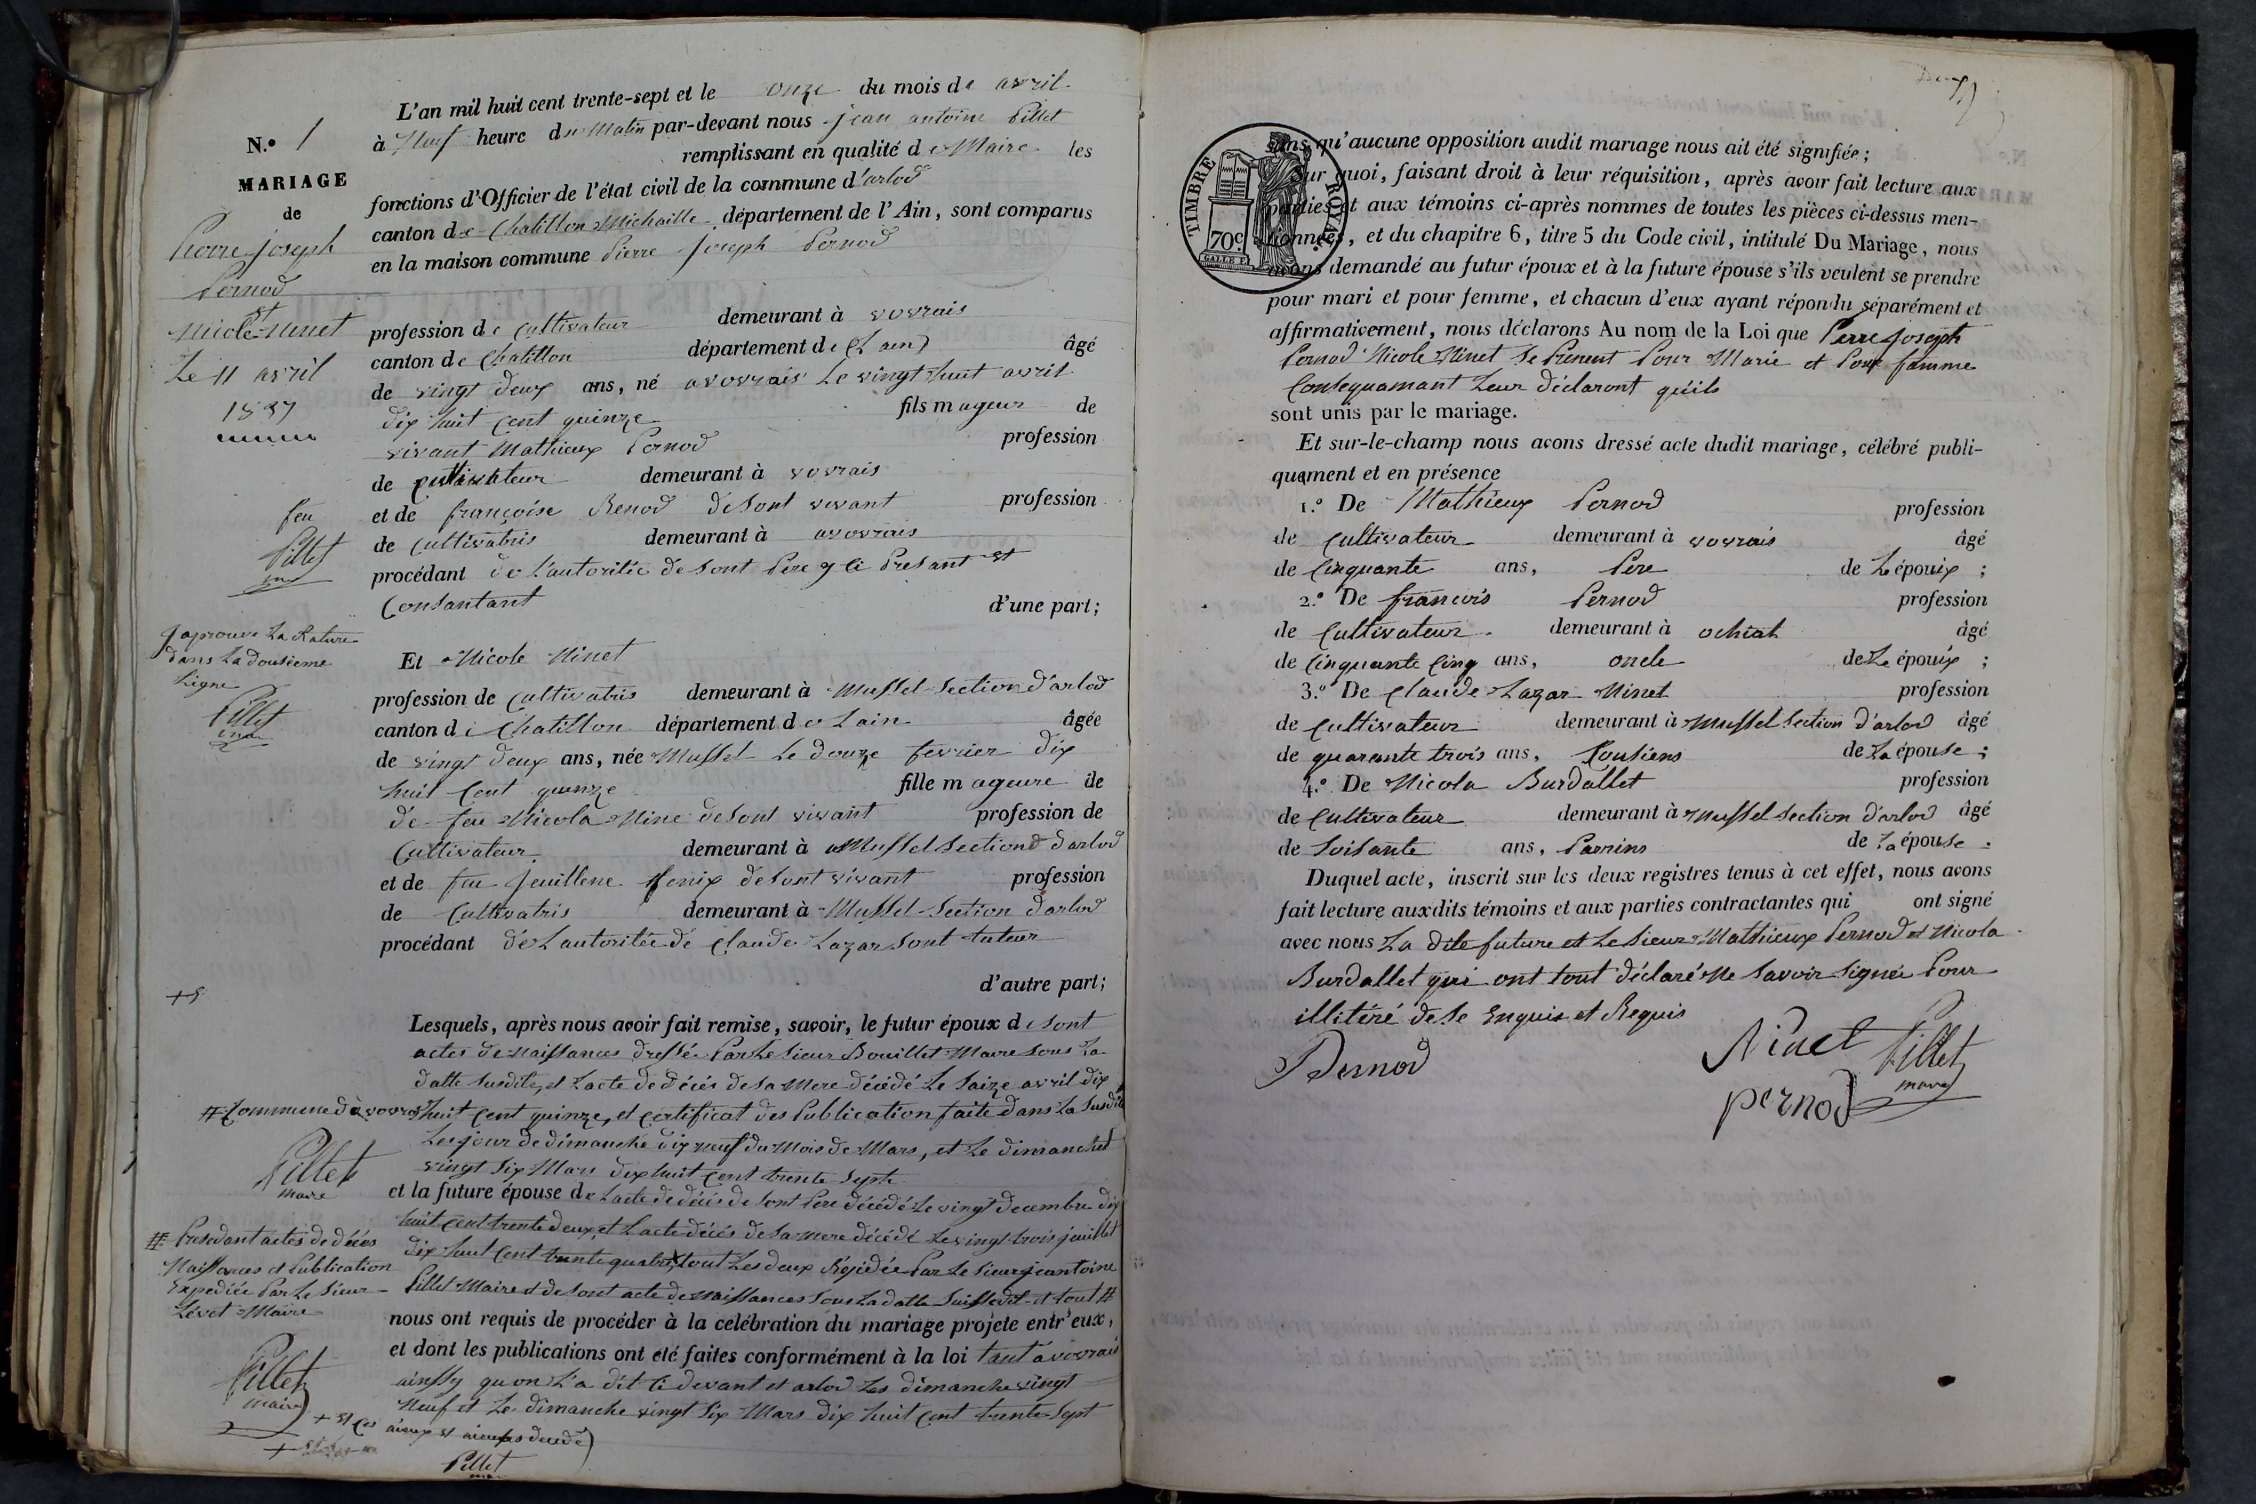 N.o 1
MARIAGE
de
Pierre joseph
Pernod
et
Nicole Ninet
Le 11 avril
1837
L'an mil huit cent trente-sept et le onze du mois de avril
à Neuf heure du Matin par-devant nous jean antoine Pillet
remplissant en qualité de Maire les
fonctions d'Officier de l'état civil de la commune d'arlod
canton de Chatillon Michaille département de l'Ain, sont comparus
en la maison commune Pierre joseph Pernod
profession de Cultivateur demeurant à vovrais
canton de Chatillon département de Lain âgé
de vingt deux ans, né avovrais Le vingt huit avril
dix huit Cent quinze fils mageur de
vivant Mathieux Pernod profession
de Cultivateur demeurant à vovrais
feu
et de françoise Renod deSont vivant profession
Pillet
de Cultivatris demeurant à avovrais
procédant de L'autoritée de Sont Pere y Ci PreSant et
Consantant d'une part;
J'aprouve La Rature
dans La dousieme
Ligne
Pillet
Et Nicole Ninet
profession de Cultivatris demeurant à Mussel Section d'arlod
canton de Chatillon département de Lain âgée
de vingt deux ans, née Mussel Le douze fevrier dix
huit Cent quinze fille mageure de
de feu Nicola Nine deSont vivant profession de
Cultivateur demeurant à Mussel Section d'arlod
et de feu jeuillene fenix deSont vivant profession
de Cultivatris demeurant à Mussel Section d'arlod
procédant de L'autoritée de Claude Lazar Sont tuteur
d'autre part;
Lesquels, après nous avoir fait remise, savoir, le futur époux de Sont
actes de Naissances dressée Par Le Sieur Bouillet Maire Sous La
datte Susdite, et L'acte de décés de Sa Mere décédé Le Saize avril dix
huit Cent quinze, et Certificat des Publication faite dans La Susdite
# Commune d'avovrais
Les jour de dimanche dix neuf du Mois de Mars, et Le dimanche
vingt Six Mars dix huit Cent trente Septe
Pillet
maire
et la future épouse de Lacte de décés de Sont Pere décédé Le vingt decembre dix
huit Cent trente deux, et Lacte décés de Sa mere décédé Le vingt trois juillet
dix huit Cent trente quatre, tout Les deux Rejidée Par Le Sieur jeantoine
Pillet Maire et de Sont acte de Naissances Sous La datte Suissedit et tout #
# Presedant actes de décés
Naissances et Publication
Expediée Par Le Sieur
Levet Maire
Pillet
maire
nous ont requis de procéder à la celébration du mariage projeté entr'eux,
et dont les publications ont été faites conformément à la loi tant avovrais
ainssy quon L'a dit Ci devant et arlod Les dimanche vingt
Neuf et Le dimanche vingt Six Mars dix huit Cent trente Sept
+ et Ces aieux et aieules décédé
Pillet
TIMBRE ROYAL
70c.
sans qu'aucune opposition audit mariage nous ait été signifiée;
Sur quoi, faisant droit à leur réquisition, après avoir fait lecture aux
parties et aux témoins ci-après nommes de toutes les pièces ci-dessus men-
tionnées, et du chapitre 6, titre 5 du Code civil, intitulé Du Mariage, nous
avons demandé au futur époux et à la future épouse s'ils veulent se prendre
pour mari et pour femme, et chacun d'eux ayant répondu séparément et
affirmativement, nous déclarons Au nom de la Loi que Pierre joseph
Pernod Nicole Ninet Se Prenent Pour Marie et Pour famme
Consequamant Leur déclaront qu'ils
sont unis par le mariage.
Et sur-le-champ nous avons dressé acte dudit mariage, célébré publi-
quement et en présence
1.o De Mathieux Pernod profession
de Cultivateur demeurant à vovrais âgé
de Cinquante ans, Pere de Le épouix ;
2.o De françois Pernod profession
de Cultivateur demeurant à ochiat âgé
de Cinquante Cinq ans, oncle de Le épouix ;
3.o De Claude Lazar Ninet profession
de Cultivateur demeurant à Mussel Section d'arlod âgé
de quarante trois ans, Cousiens de La épouse ;
4.o De Nicola Burdallet profession
de Cultivateur demeurant à Mussel Section d'arlod âgé
de Soisante ans, Parrins de La épouse .
Duquel acte, inscrit sur les deux registres tenus à cet effet, nous avons
fait lecture auxdits témoins et aux parties contractantes qui ont signé
avec nous La dite future et Le Sieur Mathieux Pernod et Nicola
Burdallet qui ont tout déclaré Ne Savoir Signée Pour
illitéré de Se Enquis et Requis
Pernod Ninet Pillet
maire
pernod